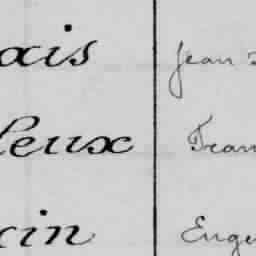 ais Jean
leux Fran
in Euge